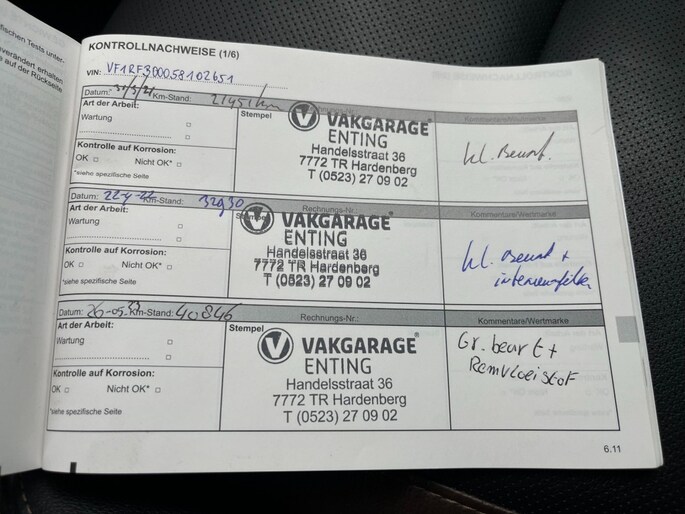 fischen Tests unter-
verändert erhalten
e auf der Rückseite
KONTROLLNACHWEISE (1/6)
VIN: VF1RFB00058102651
Datum: 31/3/21 Km-Stand: 21451 km
Art der Arbeit:
Wartung
Kontrolle auf Korrosion:
OK Nicht OK*
*siehe spezifische Seite
Stempel
VAKGARAGE
ENTING
Handelsstraat 36
7772 TR Hardenberg
T (0523) 27 09 02
Kommentare/Wertmarke
kl. Beurt.
Datum: 22-4-22 Km-Stand: 32930
Art der Arbeit:
Wartung
Kontrolle auf Korrosion:
OK Nicht OK*
*siehe spezifische Seite
Stempel
Rechnungs-Nr.:
VAKGARAGE
ENTING
Handelsstraat 36
7772 TR Hardenberg
T (0523) 27 09 02
Kommentare/Wertmarke
kl. Beurt +
interieurfilter
Datum: 26-05-23 Km-Stand: 40846
Art der Arbeit:
Wartung
Kontrolle auf Korrosion:
OK Nicht OK*
*siehe spezifische Seite
Rechnungs-Nr.:
Stempel
VAKGARAGE
ENTING
Handelsstraat 36
7772 TR Hardenberg
T (0523) 27 09 02
Kommentare/Wertmarke
Gr. beurt +
Remvloeistof
6.11